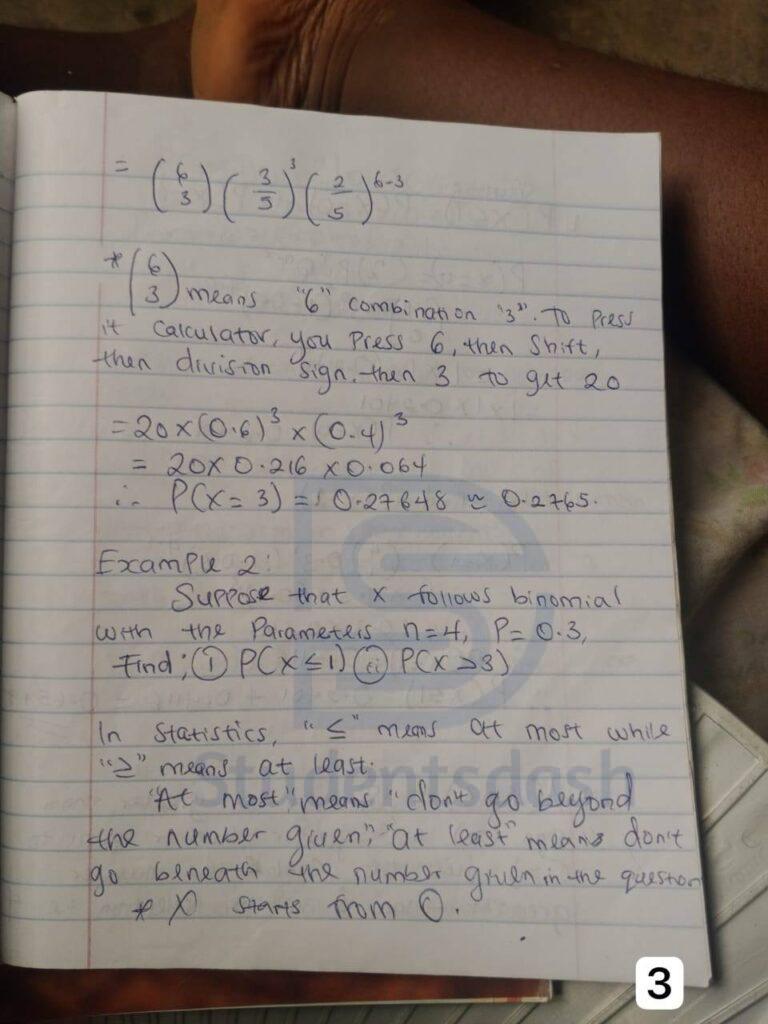 = (6 3) (3/5)³ (2/5)⁶⁻³
* (6 3) means "6" combination "3". To press
it calculator, you press 6, then Shift,
then division sign, then 3 to get 20
= 20 × (0.6)³ × (0.4)³
= 20 × 0.216 × 0.064
∴ P(X = 3) = 0.27648 ≃ 0.2765.
Example 2:
Suppose that X follows binomial
with the Parameters n=4, P= 0.3,
Find; (i) P(X ≤ 1) (ii) P(X ≥ 3)
In Statistics, "≤" means at most while
"≥" means at least.
"At most" means "don't go beyond
the number given", "at least" means don't
go beneath the number given in the question
* X starts from 0.
Studentsdash
3